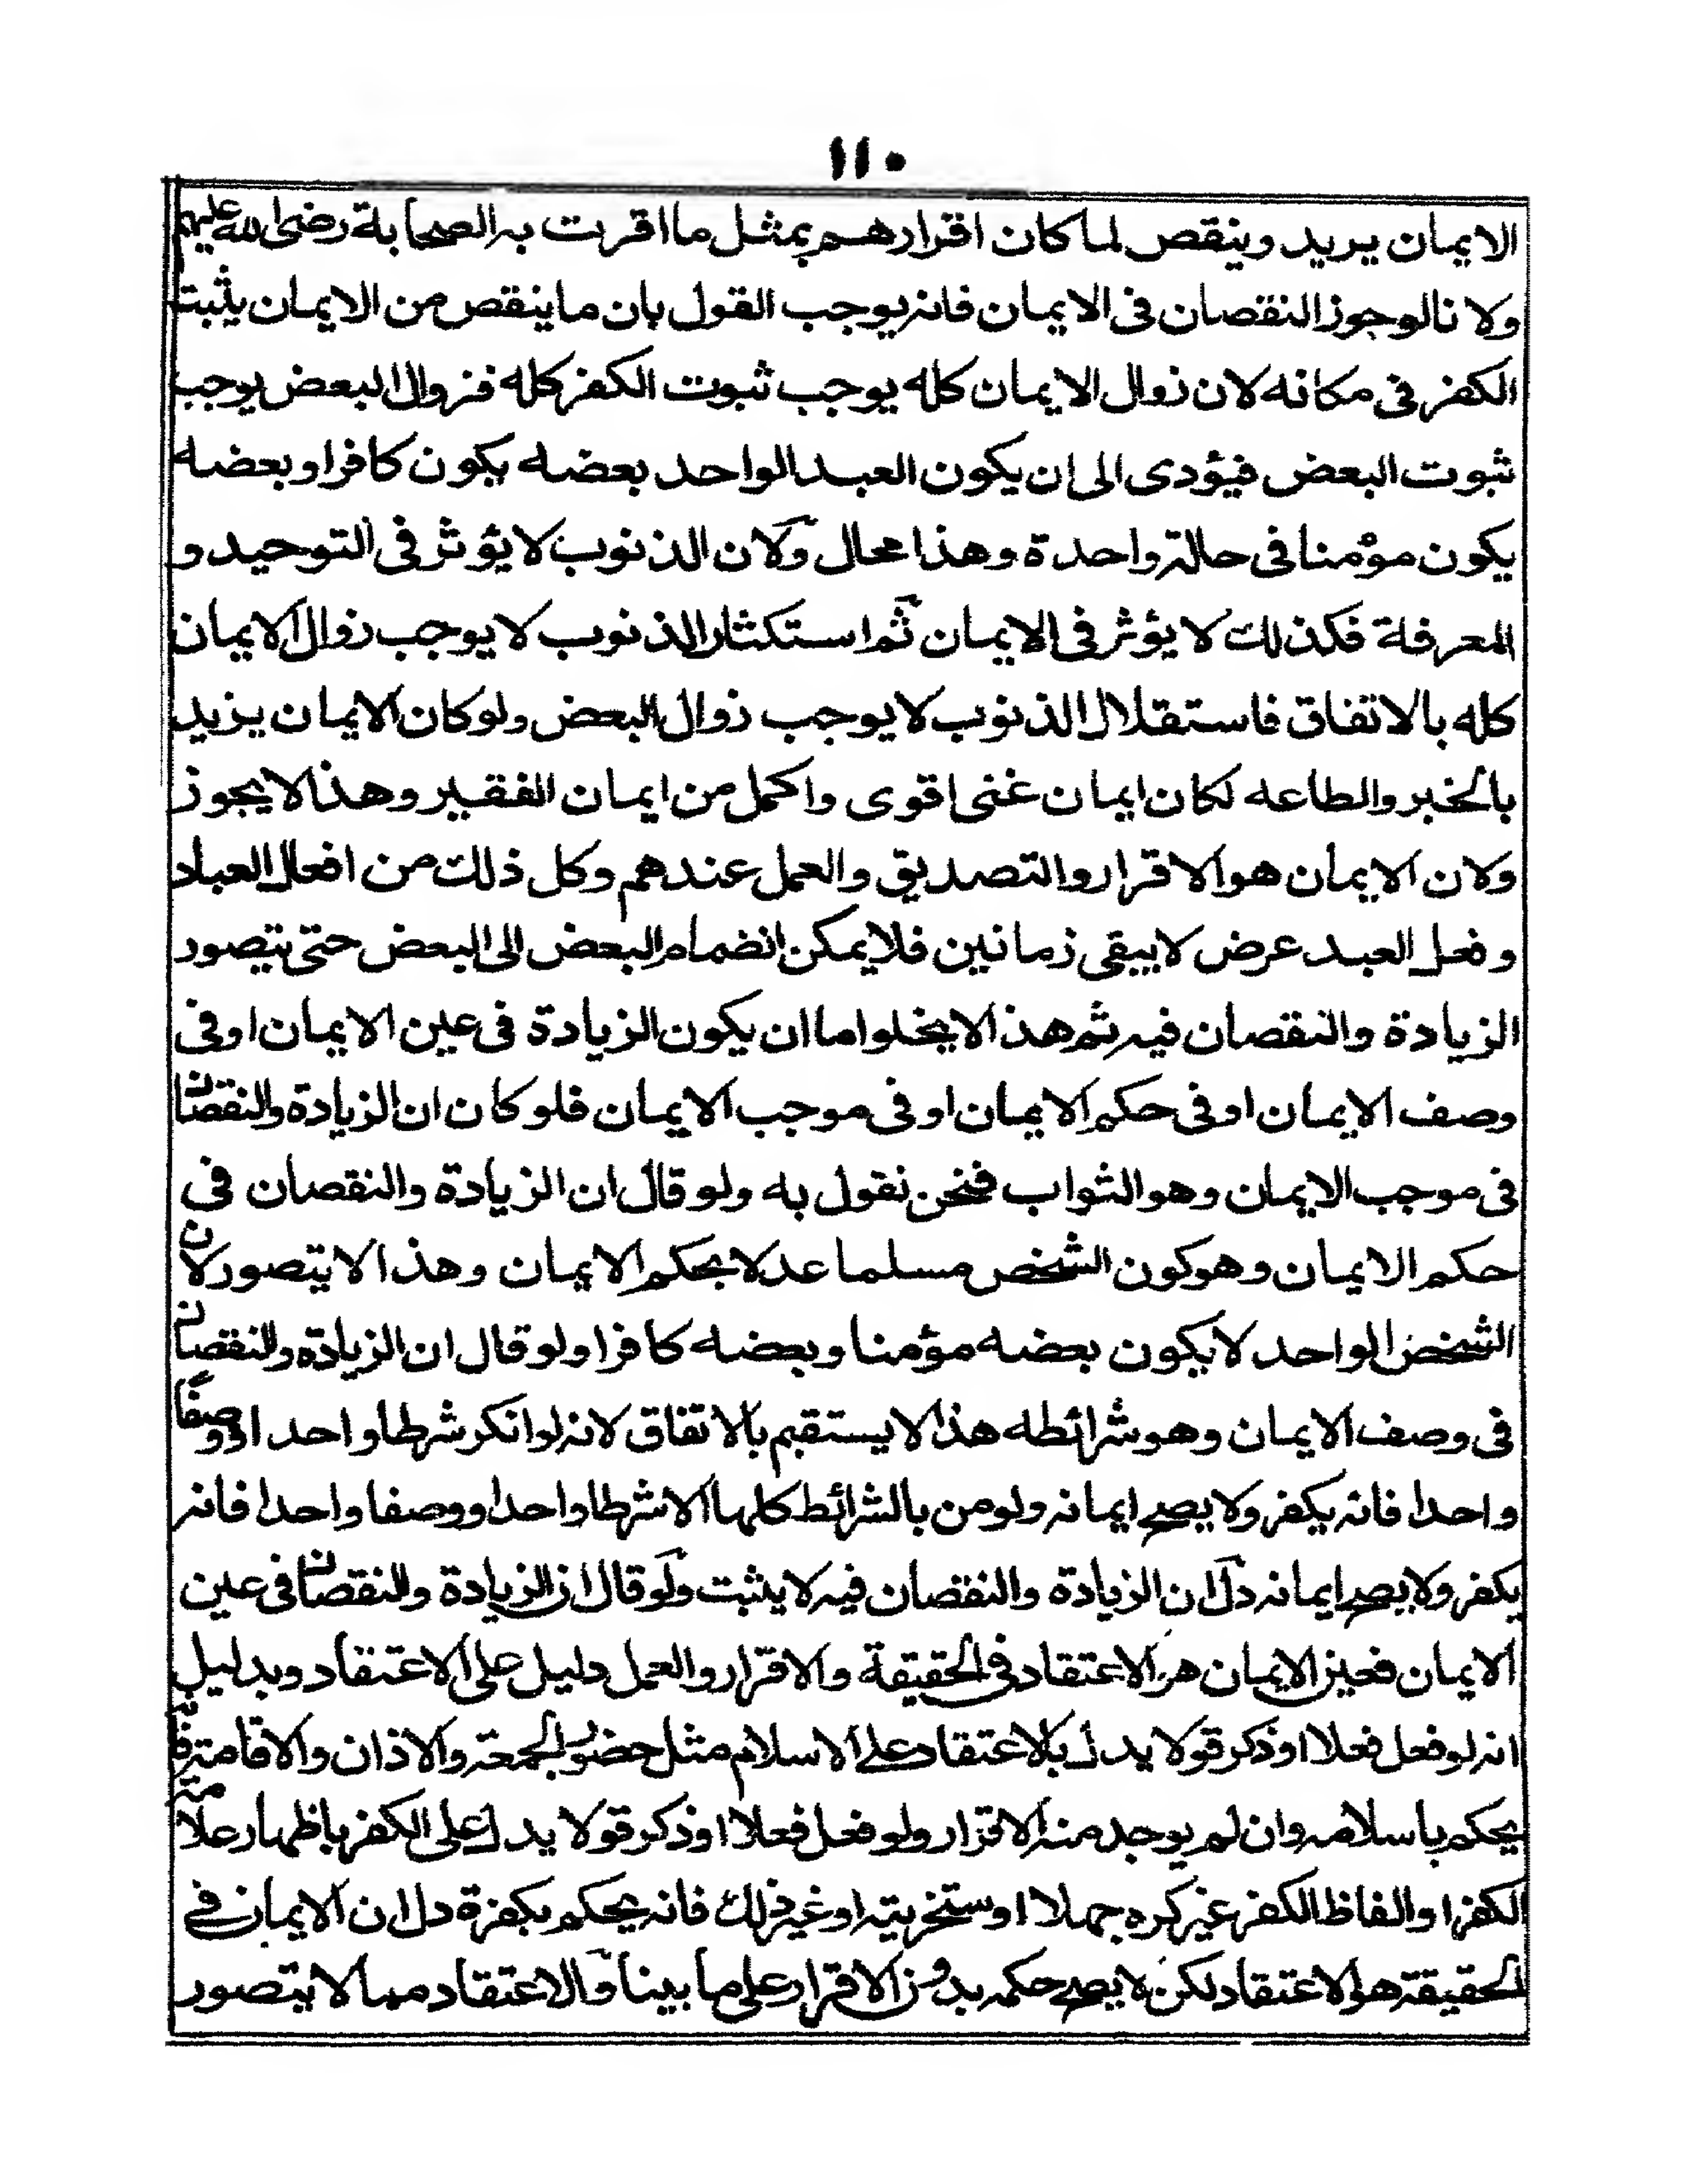 ١١٠
الايمان يريد وينقص لما كان اقرارهم بمثل ما اقرت به الصحابة رضى الله عليهم
ولا نا لو جوز النقصان فى الايمان فانه يوجب القول بان ما ينقص من الايمان يثبت
الكفر فى مكانه لان زوال الايمان كله يوجب ثبوت الكفر كله فزوال البعض يوجب
ثبوت البعض فيؤدى الى ان يكون العبد الواحد بعضه يكون كافرا وبعضه
يكون مؤمنا فى حالة واحدة وهذا محال ولان الذنوب لا يؤثر فى التوحيد و
المعرفة فكذلك لا يؤثر فى الايمان ثم استكثار الذنوب لا يوجب زوال الايمان
كله بالاتفاق فاستقلال الذنوب لا يوجب زوال البعض ولو كان الايمان يزيد
بالخبر والطاعه لكان ايمان غنى اقوى واكمل من ايمان الفقير وهذا لا يجوز
ولان الايمان هو الاقرار والتصديق والعمل عندهم وكل ذلك من افعال العباد
وفعل العبد عرض لا يبقى زمانين فلا يمكن انضمام البعض الى البعض حتى يتصور
الزيادة والنقصان فيه ثم هذا لا يخلو اما ان يكون الزيادة فى عين الايمان او فى
وصف الايمان او فى حكم الايمان او فى موجب الايمان فلو كان ان الزيادة والنقصان
فى موجب الايمان وهو الثواب فنحن نقول به ولو قال ان الزيادة والنقصان فى
حكم الايمان وهو كون الشخص مسلما عدلا بحكم الايمان وهذا لا يتصور لان
الشخص الواحد لا يكون بعضه مؤمنا وبعضه كافرا ولو قال ان الزيادة والنقصان
فى وصف الايمان وهو شرائطه هذا لا يستقيم بالاتفاق لانه لو انكر شرطا واحدا او وصفا
واحدا فانه يكفر ولا يصح ايمانه ولو من بالشرائط كلها الا شرطا واحدا ووصفا واحدا فانه
يكفر ولا يصح ايمانه دل ان الزيادة والنقصان فيه لا يثبت ولو قال ان الزيادة والنقصان فى عين
الايمان فعين الايمان هو الاعتقاد فى الحقيقة والاقرار والعمل دليل على الاعتقاد وبدليل
انه لو فعل فعلا او ذكر قولا يدل بالاعتقاد على الاسلام مثل حضور الجمعة والاذان والاقامة
يحكم باسلامه وان لم يوجد منه الاقرار ولو فعل فعلا او ذكر قولا يدل على الكفر باظهار علامة
الكفر او الفاظ الكفر غير كره جهلا او ستخريته او غير ذلك فانه يحكم بكفرة دل ان الايمان فى
الحقيقة هو الاعتقاد لكن لا يصح حكمه بدون الاقرار على ما بينا والاعتقاد مما لا يتصور